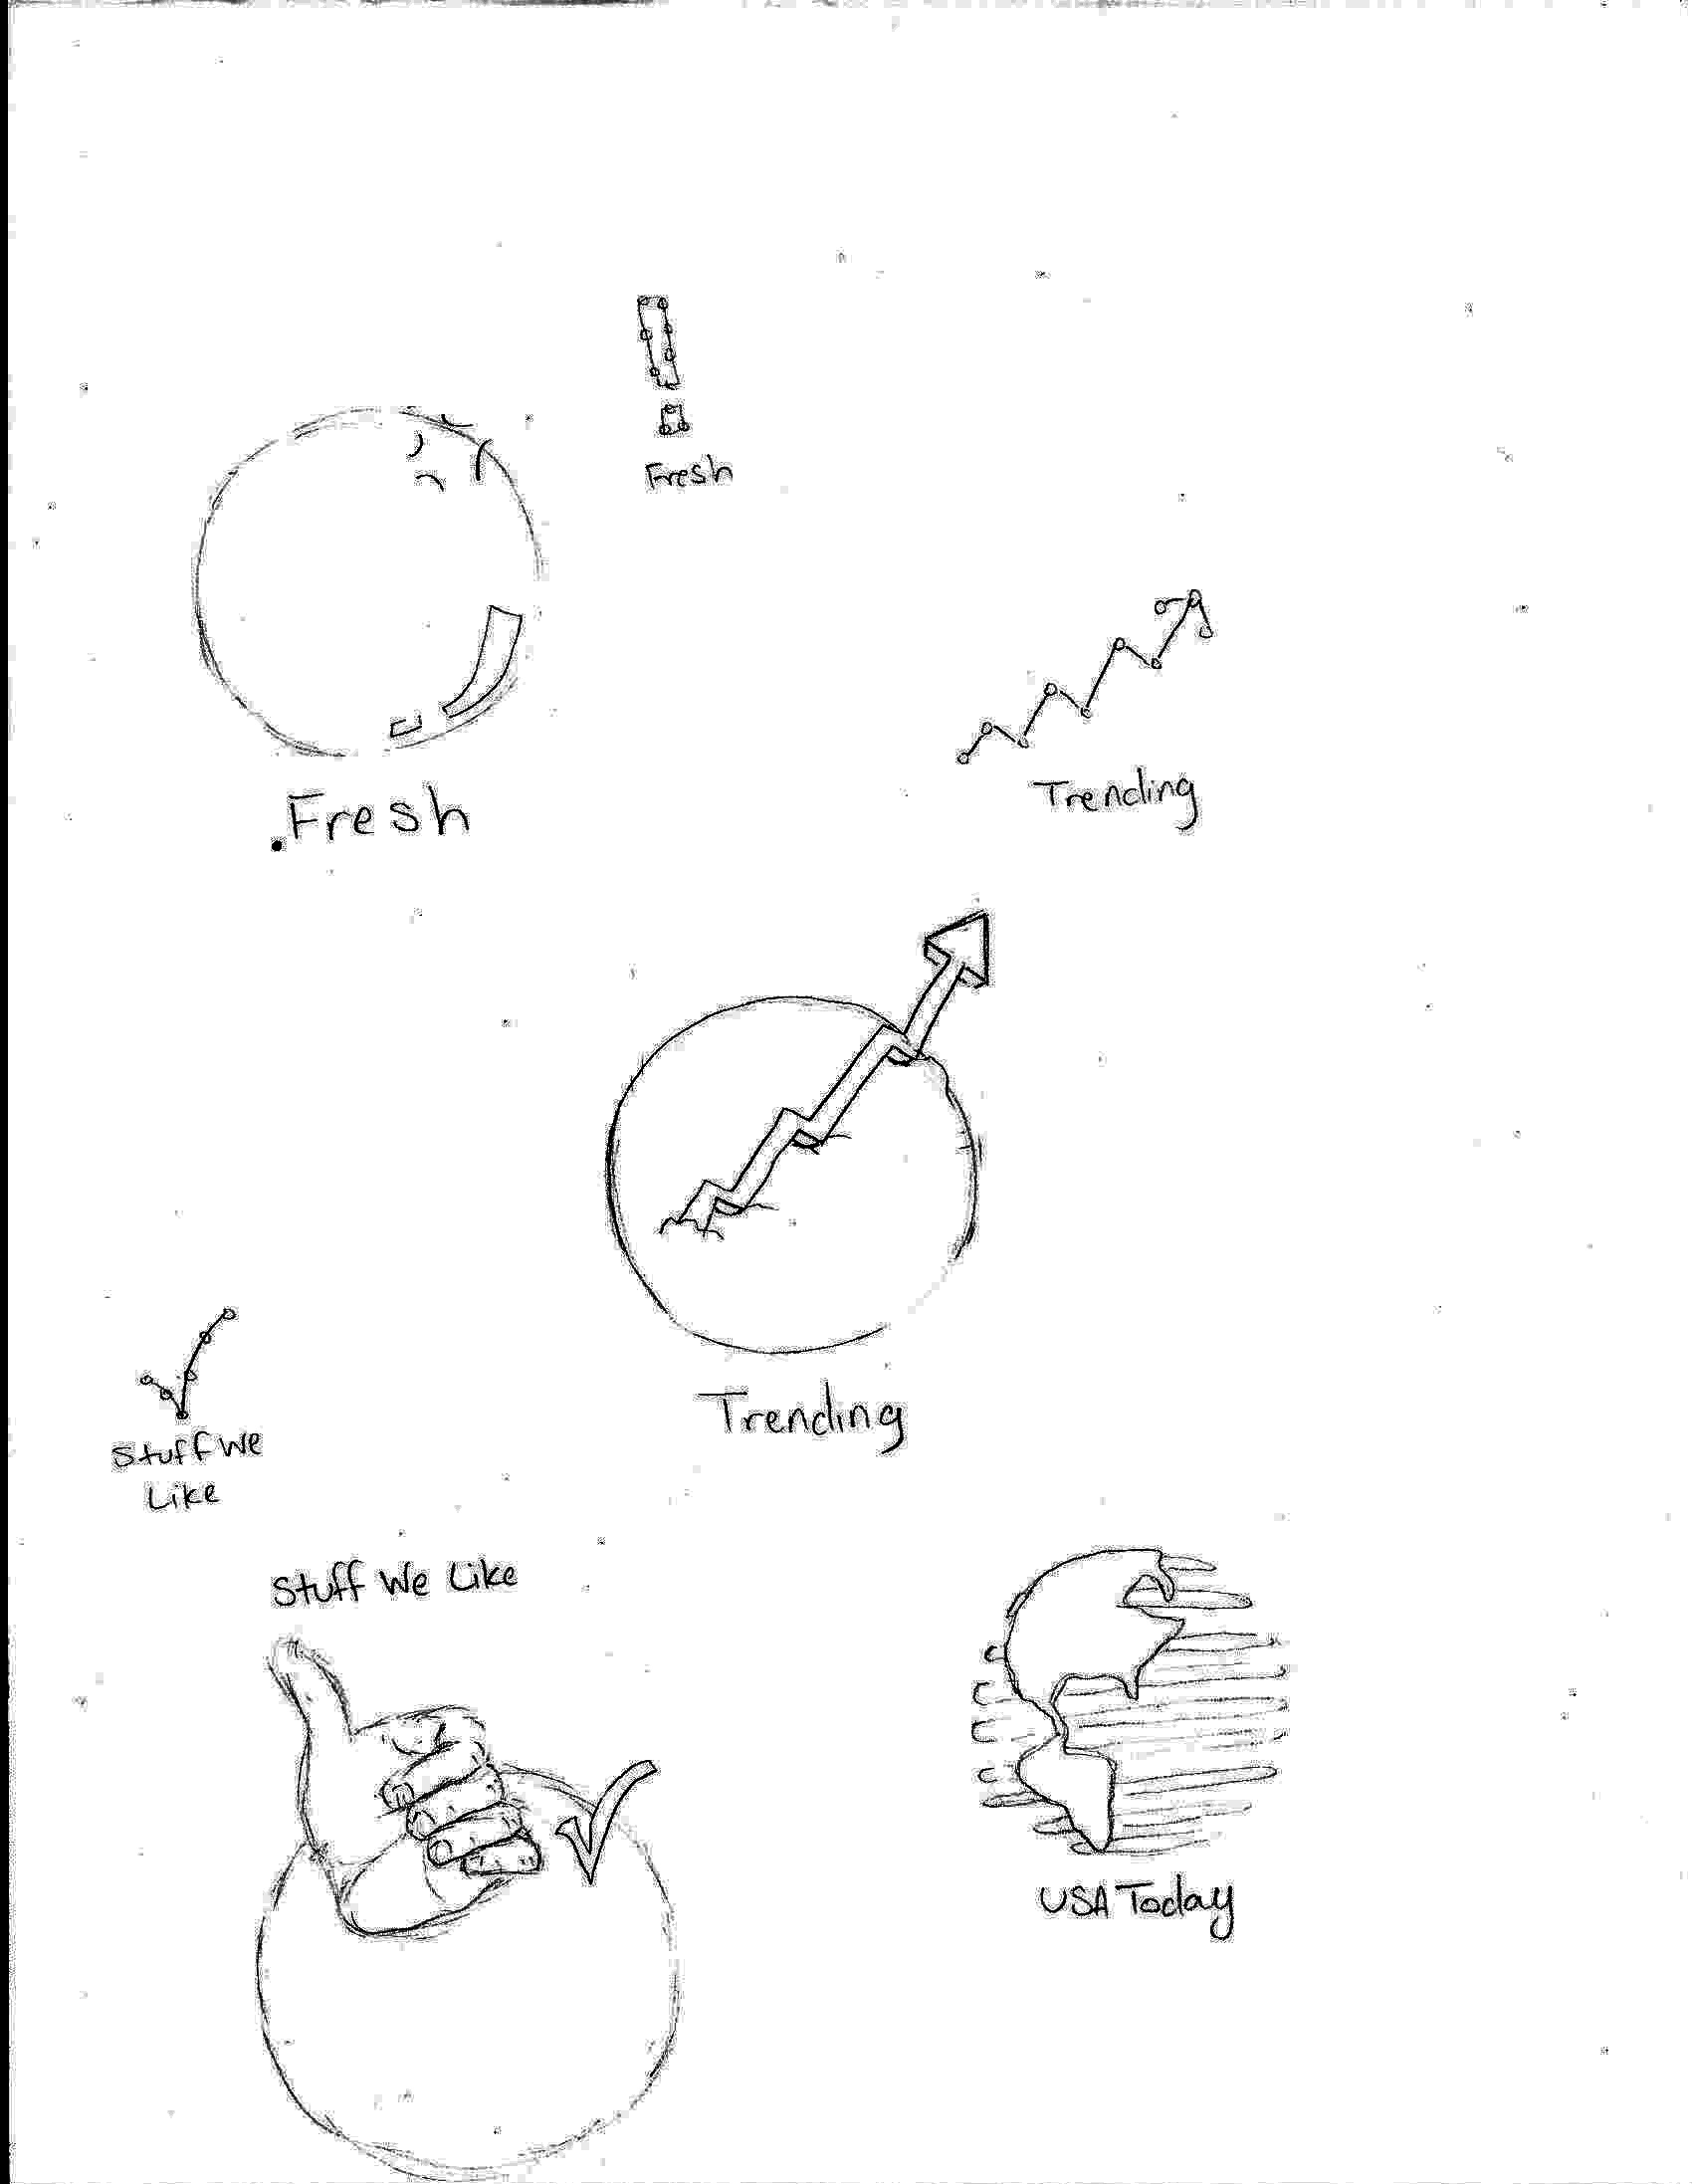 Fresh
Fresh
Trending
Trending
Stuff We
Like
Stuff We Like
USA Today